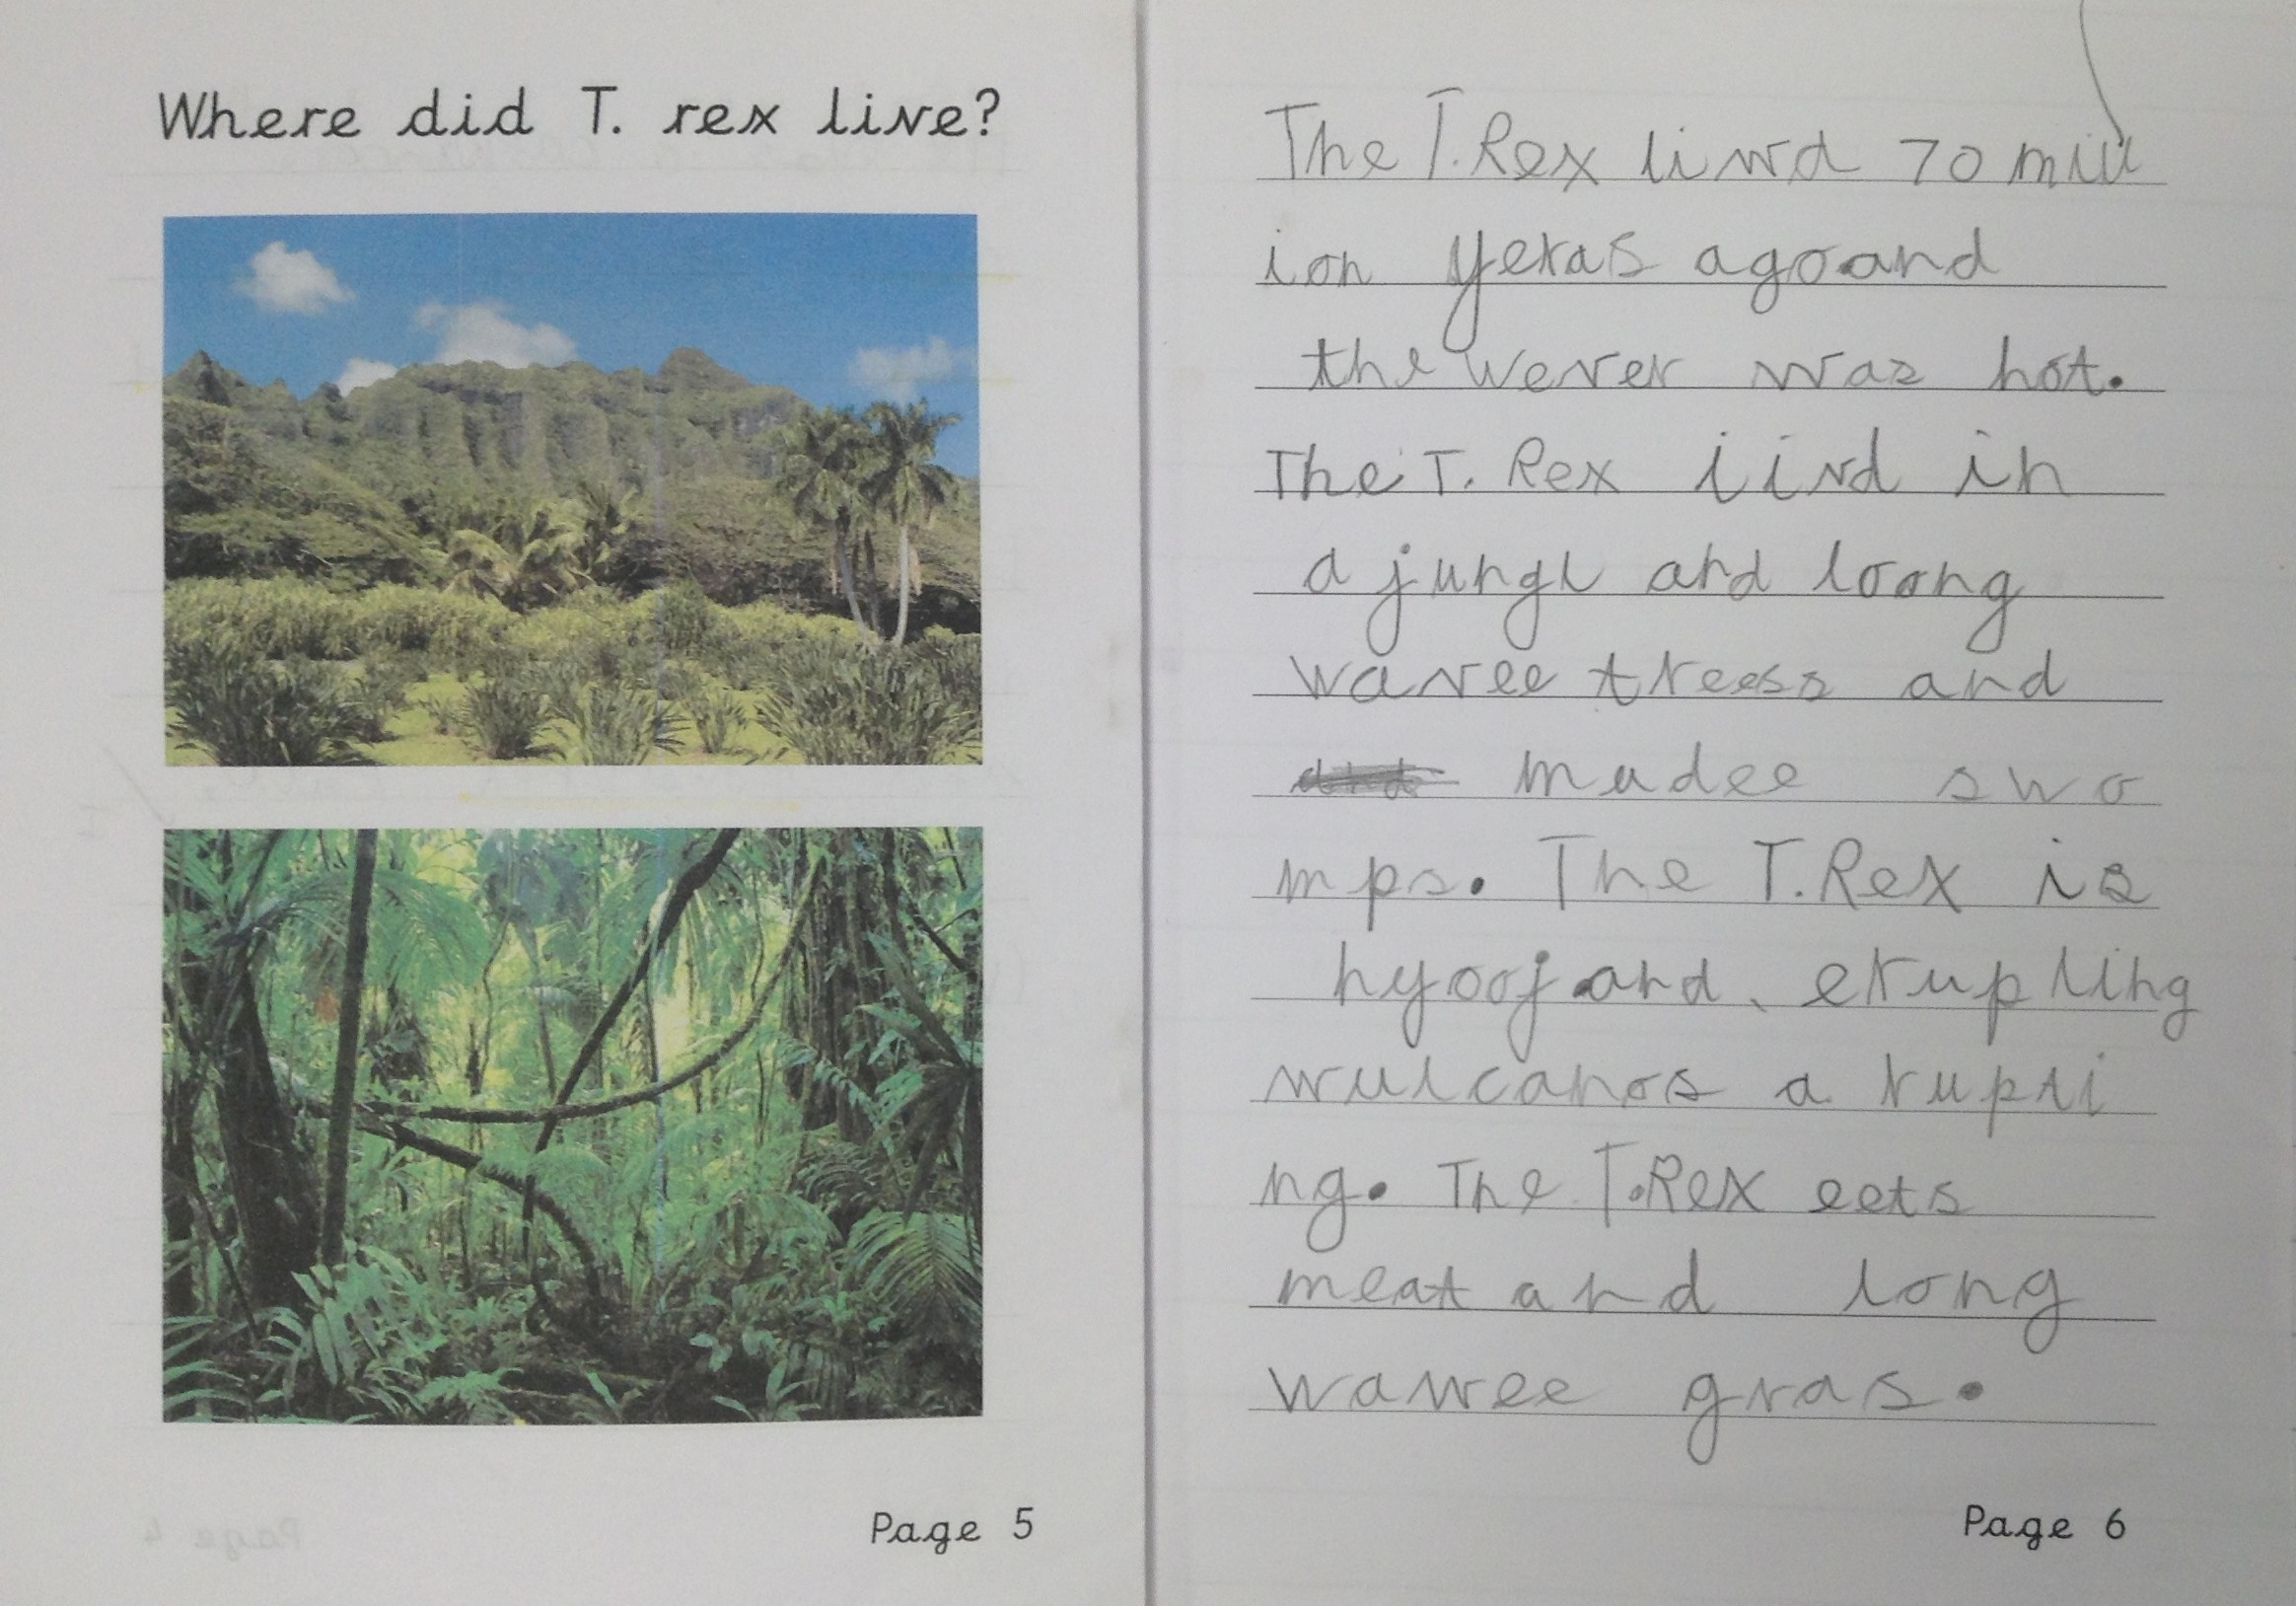 Where did T. rex live?
Page 5
The T.Rex livvd 70 mill
ion yeras ago and
the wever was hot.
The T. Rex livd in
a jungl and loong
wavee treess and
and madee swo
mps. The T.Rex is
hyooj and erupting
wulcanos a rupti
ng. The T.Rex eets
meat and long
wavvee gras.
Page 6